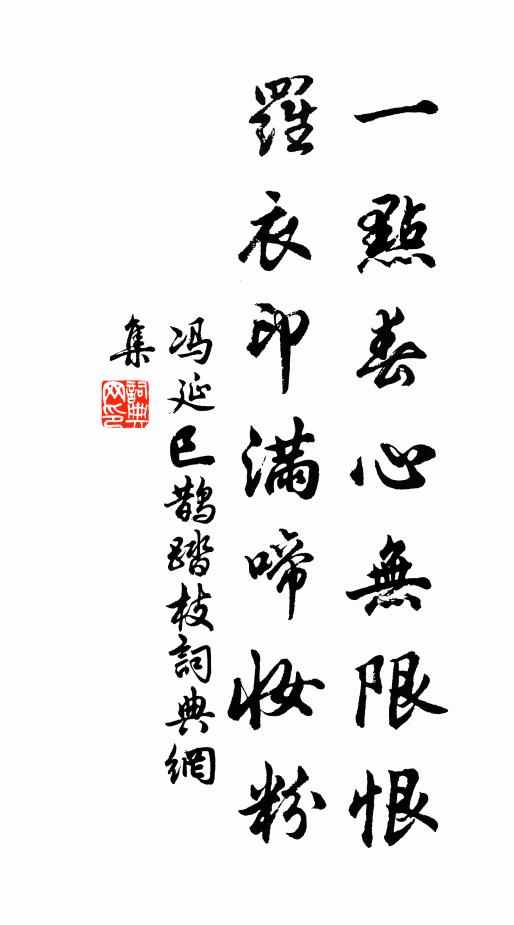 一點春心無限恨
羅衣印滿啼妝粉
冯延巳鹊踏枝詞典網
集
詞典
网印